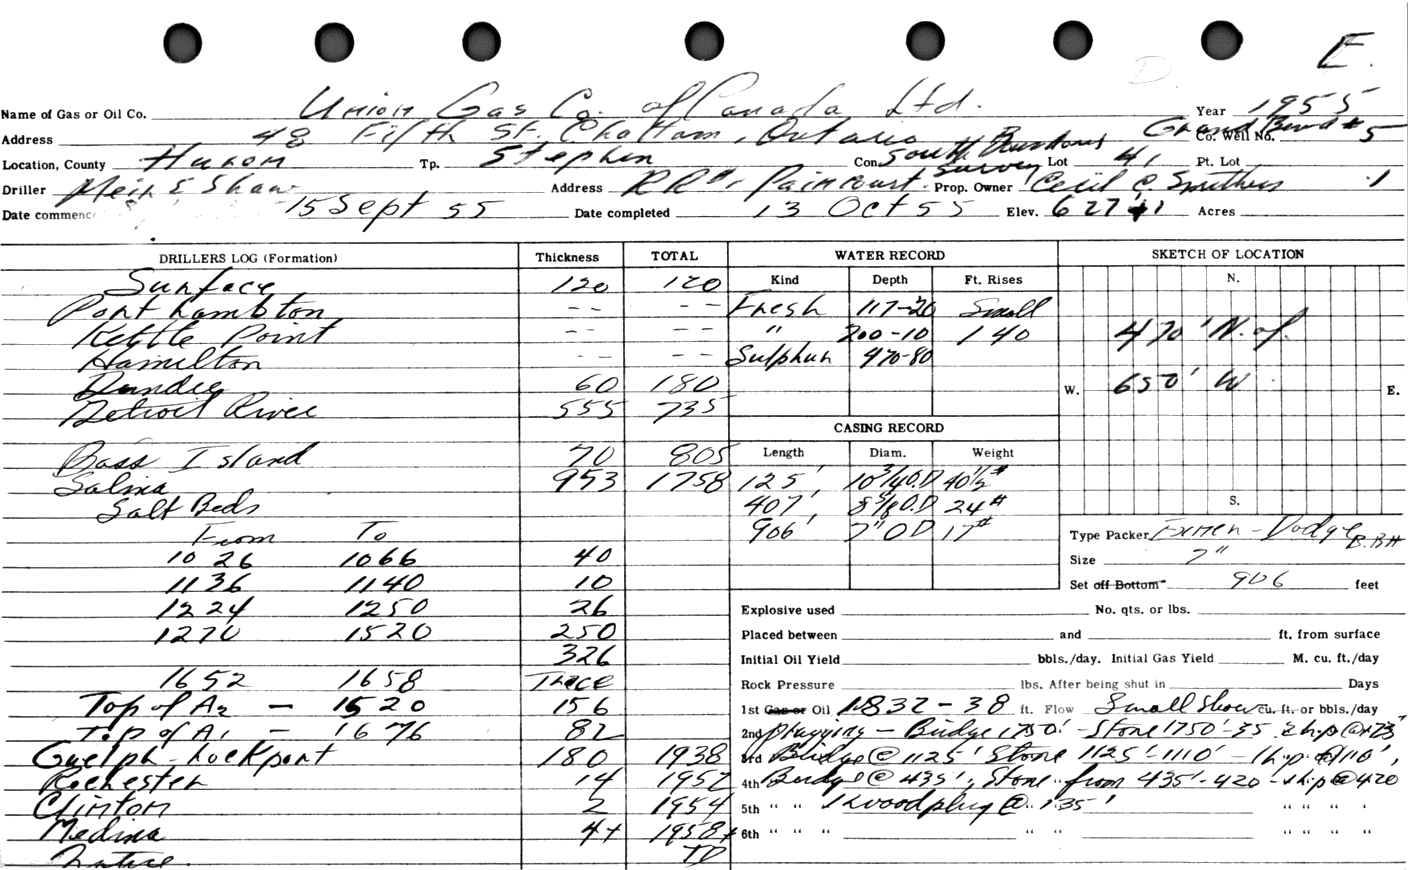 E.
Name of Gas or Oil Co. Union Gas Co. of Canada Ltd. Year 1955
Address 48 Fifth St. Chatham, Ontario Co. Well No. Grand Bend # 5
Location, County Huron Tp. Stephen Con South Boundary Survey Lot 4 Pt. Lot
Driller Shaw Address RR#1 Paincourt. Prop. Owner Cecil C. Smithers 1
Date commenc 15 Sept 55 Date completed 13 Oct 55 Elev. 627 Acres
DRILLERS LOG (Formation) Thickness TOTAL
Surface 120 120
Port Lambton - -
Kettle Point - - - -
Hamilton - - - -
Dundee 60 180
Detroit River 555 735
Bass Island 70 805
Salina 953 1758
Salt Beds
From To
1026 1066 40
1136 1140 10
1224 1250 26
1270 1520 250
326
1652 1658 Trace
Top of A2 - 1520 156
Top of A1 - 1676 82
Guelph-Lockport 180 1938
Rochester 14 1952
Clinton 2 1954
Medina 4+ 1958+
TD
WATER RECORD
Kind Depth Ft. Rises
Fresh 117-20 Small
" 200-10 140
Sulphur 470-80
CASING RECORD
Length Diam. Weight
125' 10 3/4 O.D 40 1/2 #
407' 8 5/8 O.D 24 #
906' 7" O D 17 #
SKETCH OF LOCATION
N.
470' N. of
W. 650' W E.
S.
Type Packer Dodge B.B.H
Size 7"
Set off Bottom 906 feet
Explosive used No. qts. or lbs.
Placed between and ft. from surface
Initial Oil Yield bbls./day. Initial Gas Yield M. cu. ft./day
Rock Pressure lbs. After being shut in Days
1st Gas or Oil 1832-38 ft. Flow Small Show cu. ft. or bbls./day
2nd Plugging - Bridge 1750' - Stone 1750'-35
3rd Bridge @ 1125' Stone 1125'-1110' - 1 hip @ 1110',
4th Bridge @ 435', Stone from 435'-420 - hip @ 420
5th " " 1 Wood plug @ 135' " " " "
6th " " " " " " " " "